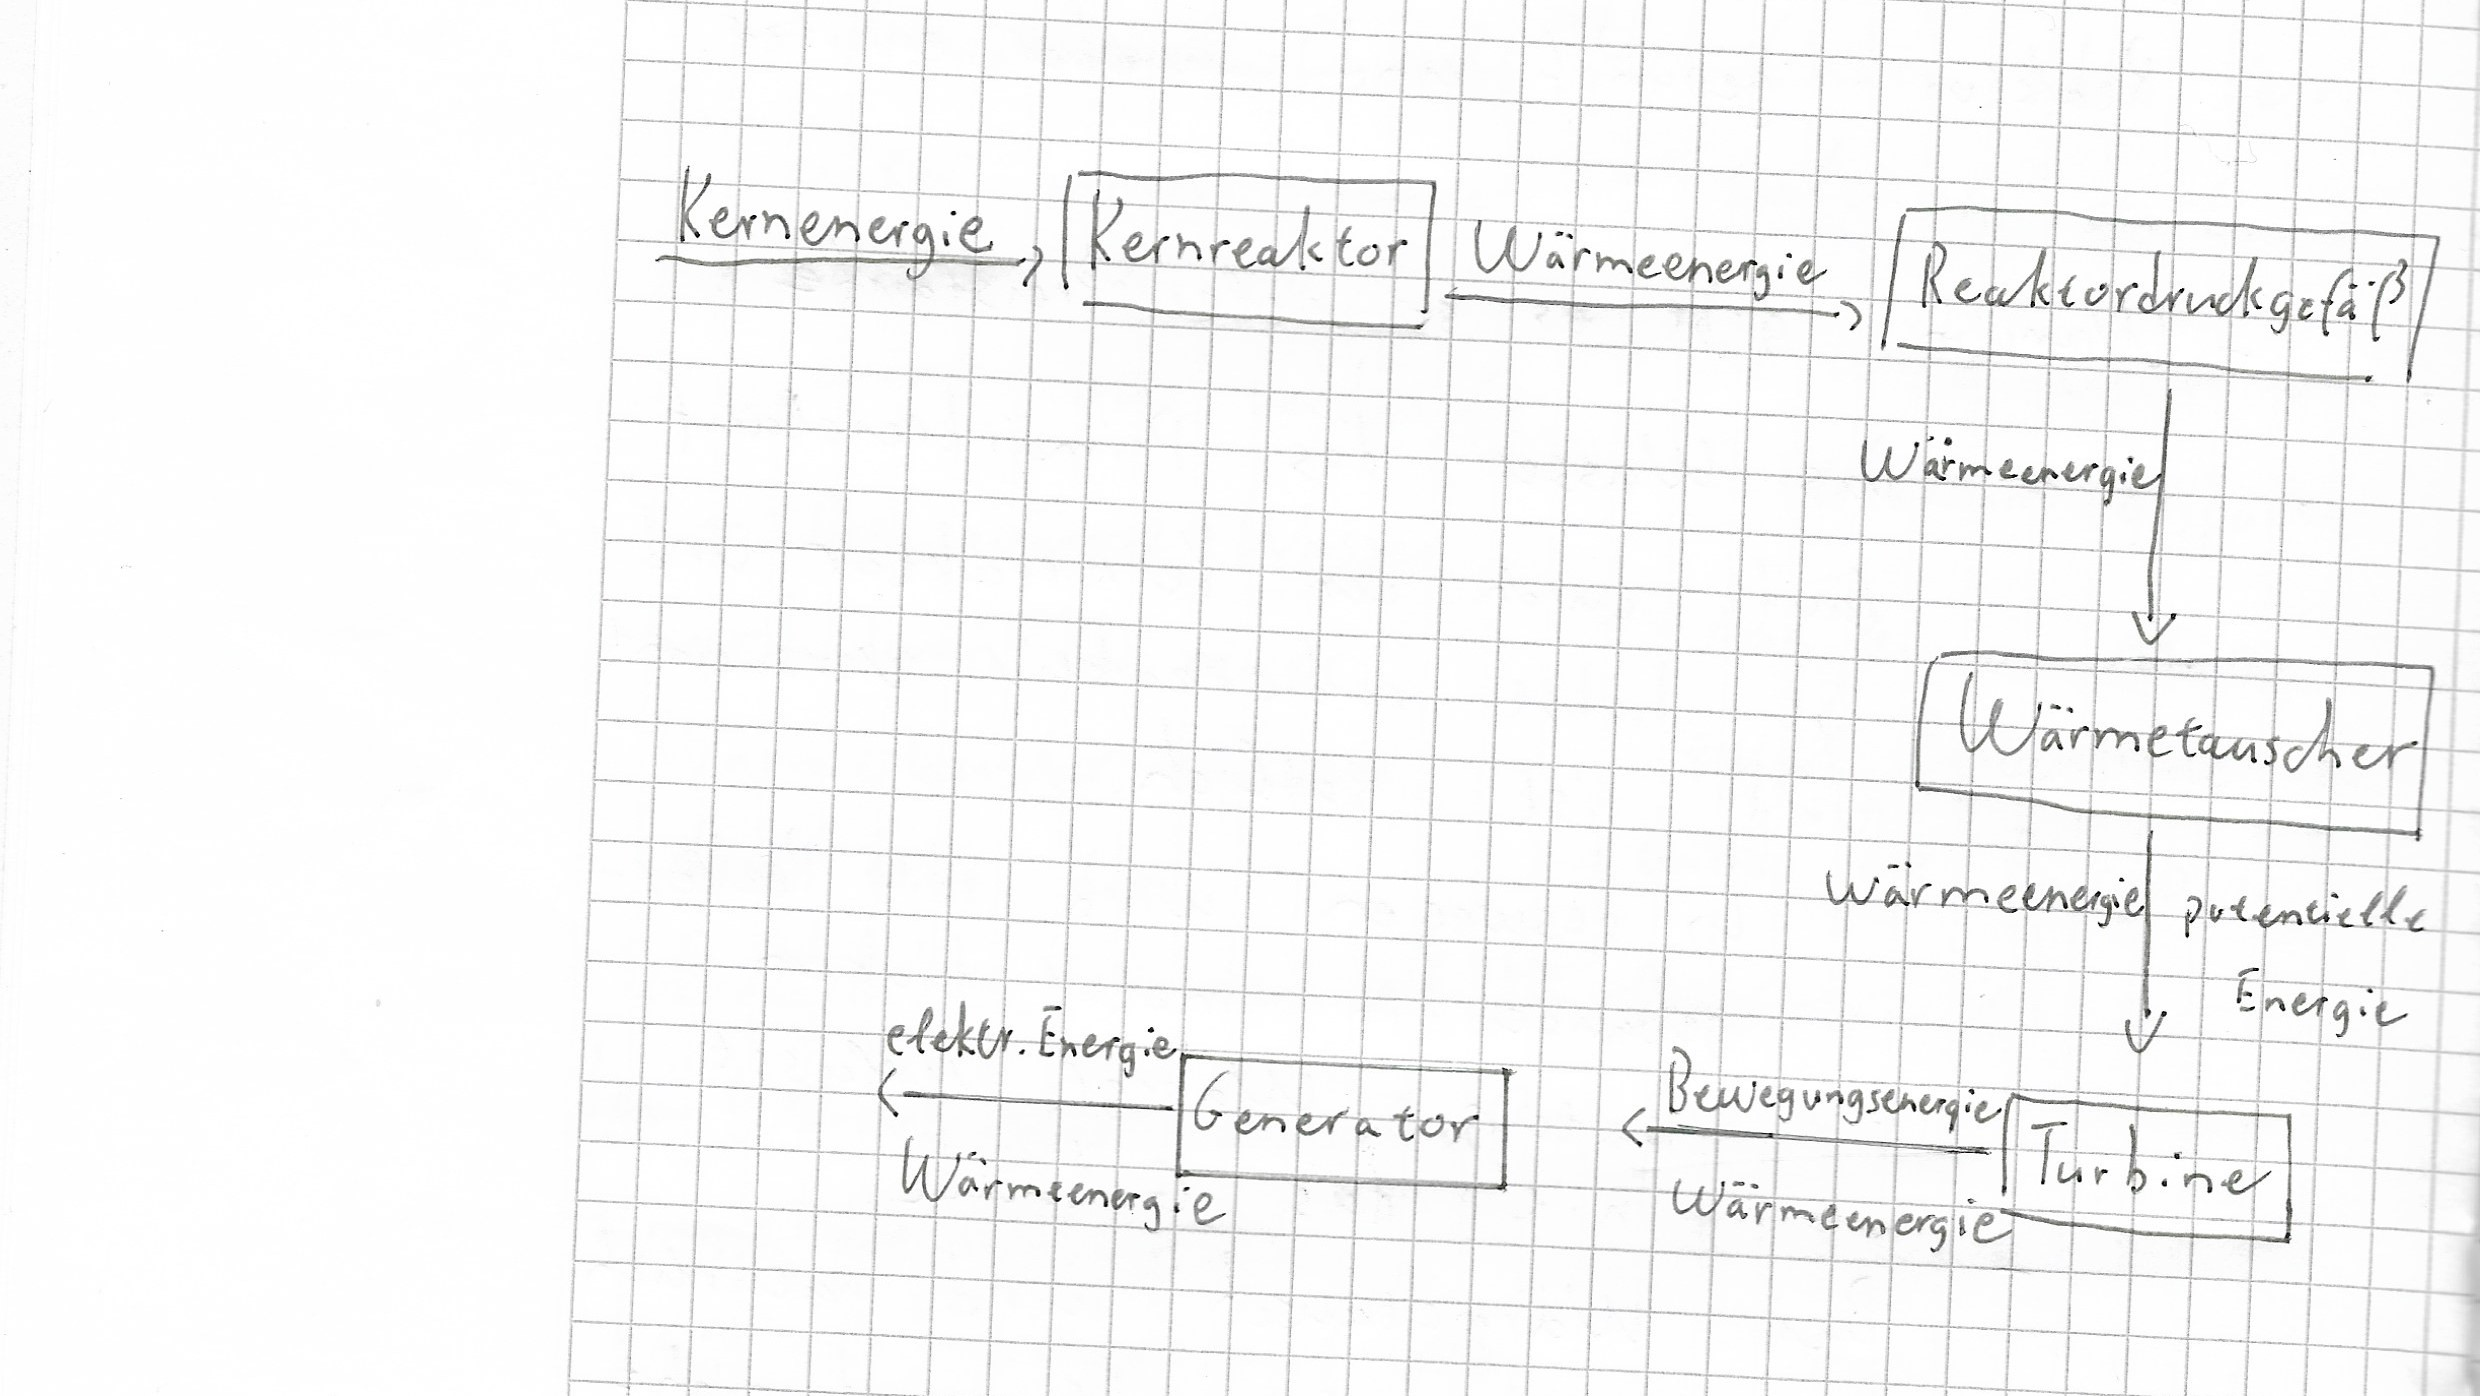 Kernenergie
Kernreaktor
Wärmeenergie
Reaktordruckgefäß
Wärmeenergie
Wärmetauscher
Wärmeenergie
potentielle
Energie
Turbine
Bewegungsenergie
Wärmeenergie
Generator
elektr. Energie
Wärmeenergie